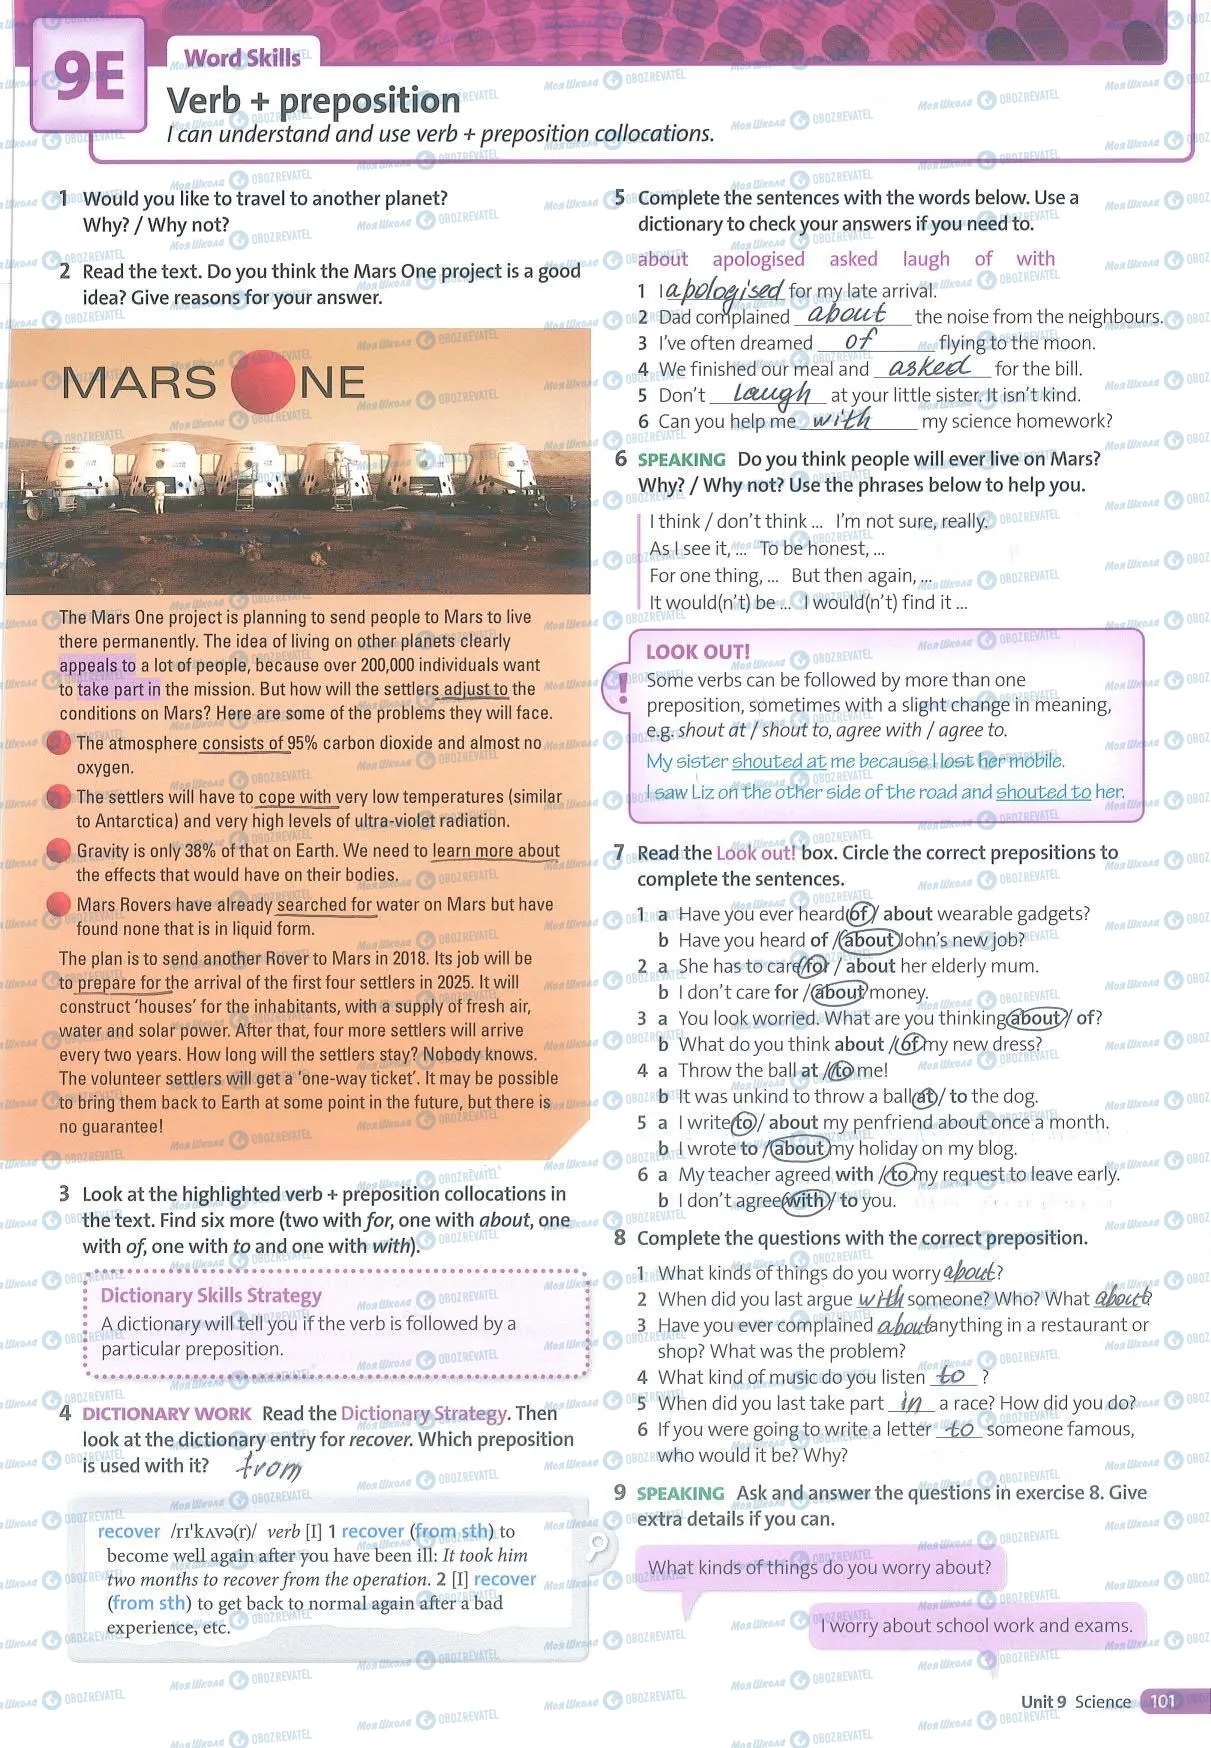 9E
Word Skills
Verb + preposition
I can understand and use verb + preposition collocations.
1 Would you like to travel to another planet?
Why? / Why not?
2 Read the text. Do you think the Mars One project is a good
idea? Give reasons for your answer.
MARS ONE
The Mars One project is planning to send people to Mars to live
there permanently. The idea of living on other planets clearly
appeals to a lot of people, because over 200,000 individuals want
to take part in the mission. But how will the settlers adjust to the
conditions on Mars? Here are some of the problems they will face.
The atmosphere consists of 95% carbon dioxide and almost no
oxygen.
The settlers will have to cope with very low temperatures (similar
to Antarctica) and very high levels of ultra-violet radiation.
Gravity is only 38% of that on Earth. We need to learn more about
the effects that would have on their bodies.
Mars Rovers have already searched for water on Mars but have
found none that is in liquid form.
The plan is to send another Rover to Mars in 2018. Its job will be
to prepare for the arrival of the first four settlers in 2025. It will
construct 'houses' for the inhabitants, with a supply of fresh air,
water and solar power. After that, four more settlers will arrive
every two years. How long will the settlers stay? Nobody knows.
The volunteer settlers will get a 'one-way ticket'. It may be possible
to bring them back to Earth at some point in the future, but there is
no guarantee!
3 Look at the highlighted verb + preposition collocations in
the text. Find six more (two with for, one with about, one
with of, one with to and one with with).
Dictionary Skills Strategy
A dictionary will tell you if the verb is followed by a
particular preposition.
4 DICTIONARY WORK Read the Dictionary Strategy. Then
look at the dictionary entry for recover. Which preposition
is used with it? from
recover /rɪˈkʌvə(r)/ verb [I] 1 recover (from sth) to
become well again after you have been ill: It took him
two months to recover from the operation. 2 [I] recover
(from sth) to get back to normal again after a bad
experience, etc.
5 Complete the sentences with the words below. Use a
dictionary to check your answers if you need to.
about apologised asked laugh of with
1 I apologised for my late arrival.
2 Dad complained about the noise from the neighbours.
3 I've often dreamed of flying to the moon.
4 We finished our meal and asked for the bill.
5 Don't laugh at your little sister. It isn't kind.
6 Can you help me with my science homework?
6 SPEAKING Do you think people will ever live on Mars?
Why? / Why not? Use the phrases below to help you.
I think / don't think ... I'm not sure, really.
As I see it, ... To be honest, ...
For one thing, ... But then again, ...
It would(n't) be ... I would(n't) find it ...
LOOK OUT!
! Some verbs can be followed by more than one
preposition, sometimes with a slight change in meaning,
e.g. shout at / shout to, agree with / agree to.
My sister shouted at me because I lost her mobile.
I saw Liz on the other side of the road and shouted to her.
7 Read the Look out! box. Circle the correct prepositions to
complete the sentences.
1 a Have you ever heard of / about wearable gadgets?
b Have you heard of / about John's new job?
2 a She has to care for / about her elderly mum.
b I don't care for / about money.
3 a You look worried. What are you thinking about / of?
b What do you think about / of my new dress?
4 a Throw the ball at / to me!
b It was unkind to throw a ball at / to the dog.
5 a I write to / about my penfriend about once a month.
b I wrote to / about my holiday on my blog.
6 a My teacher agreed with / to my request to leave early.
b I don't agree with / to you.
8 Complete the questions with the correct preposition.
1 What kinds of things do you worry about?
2 When did you last argue with someone? Who? What about?
3 Have you ever complained about anything in a restaurant or
shop? What was the problem?
4 What kind of music do you listen to ?
5 When did you last take part in a race? How did you do?
6 If you were going to write a letter to someone famous,
who would it be? Why?
9 SPEAKING Ask and answer the questions in exercise 8. Give
extra details if you can.
What kinds of things do you worry about?
I worry about school work and exams.
Unit 9 Science 101
Моя Школа OBOZREVATEL